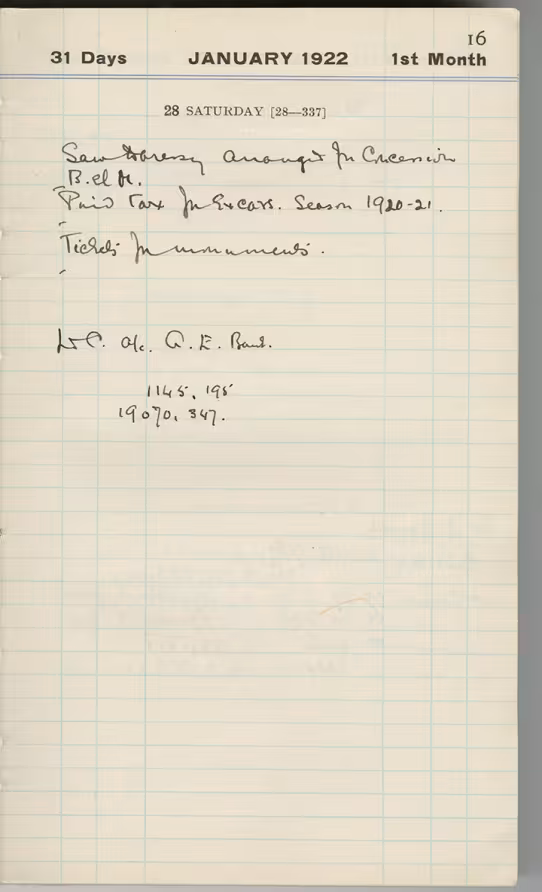 16
31 Days JANUARY 1922 1st Month
28 SATURDAY [28—337]
Saw arranged for Concession
B. el M.
Paid Tax for Excavs. Season 1920-21.
Tickets for monuments.
a/c. A. E. Bank.
1145.195
19070.347.